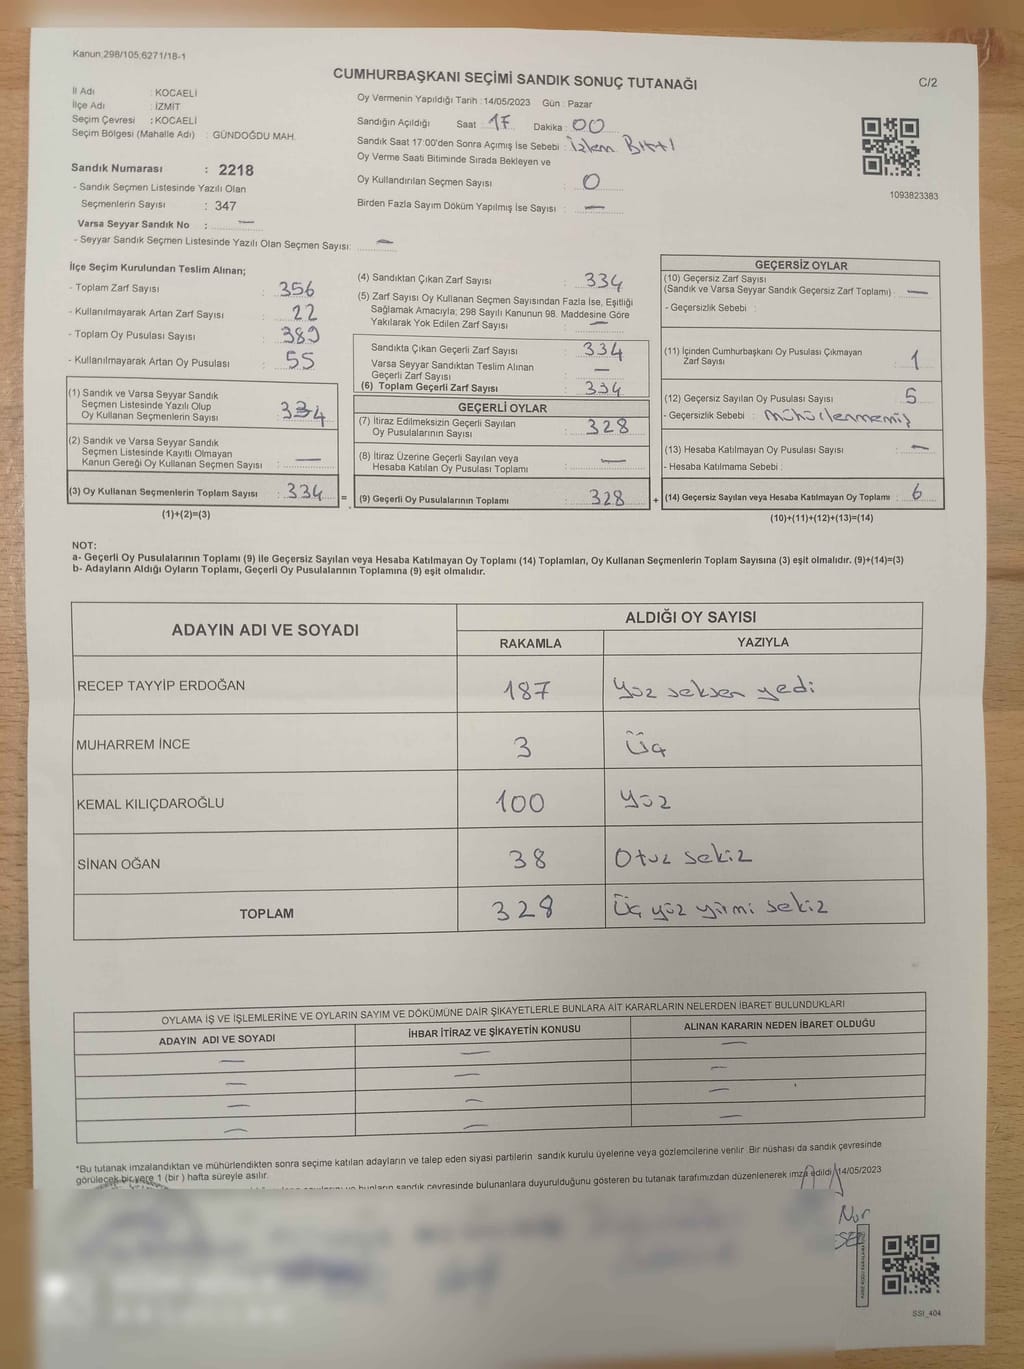 Kanun;298/105;6271/18-1
CUMHURBAŞKANI SEÇİMİ SANDIK SONUÇ TUTANAĞI
C/2
İl Adı : KOCAELİ
İlçe Adı : İZMİT
Seçim Çevresi : KOCAELİ
Seçim Bölgesi (Mahalle Adı) : GÜNDOĞDU MAH.
Sandık Numarası : 2218
- Sandık Seçmen Listesinde Yazılı Olan
Seçmenlerin Sayısı : 347
Varsa Seyyar Sandık No : —
- Seyyar Sandık Seçmen Listesinde Yazılı Olan Seçmen Sayısı: —
Oy Vermenin Yapıldığı Tarih : 14/05/2023 Gün : Pazar
Sandığın Açıldığı Saat : 17 Dakika : 00
Sandık Saat 17:00'den Sonra Açımış İse Sebebi : İşlem Bitti
Oy Verme Saati Bitiminde Sırada Bekleyen ve
Oy Kullandırılan Seçmen Sayısı : 0
Birden Fazla Sayım Döküm Yapılmış İse Sayısı : —
1093823383
İlçe Seçim Kurulundan Teslim Alınan;
- Toplam Zarf Sayısı : 356
- Kullanılmayarak Artan Zarf Sayısı : 22
- Toplam Oy Pusulası Sayısı : 389
- Kullanılmayarak Artan Oy Pusulası : 55
(1) Sandık ve Varsa Seyyar Sandık
Seçmen Listesinde Yazılı Olup
Oy Kullanan Seçmenlerin Sayısı : 334
(2) Sandık ve Varsa Seyyar Sandık
Seçmen Listesinde Kayıtlı Olmayan
Kanun Gereği Oy Kullanan Seçmen Sayısı : —
(3) Oy Kullanan Seçmenlerin Toplam Sayısı : 334 =
(1)+(2)=(3)
(4) Sandıktan Çıkan Zarf Sayısı : 334
(5) Zarf Sayısı Oy Kullanan Seçmen Sayısından Fazla İse, Eşitliği
Sağlamak Amacıyla; 298 Sayılı Kanunun 98. Maddesine Göre
Yakılarak Yok Edilen Zarf Sayısı : —
Sandıkta Çıkan Geçerli Zarf Sayısı : 334
Varsa Seyyar Sandıktan Teslim Alınan
Geçerli Zarf Sayısı : —
(6) Toplam Geçerli Zarf Sayısı : 334
GEÇERLİ OYLAR
(7) İtiraz Edilmeksizin Geçerli Sayılan
Oy Pusulalarının Sayısı : 328
(8) İtiraz Üzerine Geçerli Sayılan veya
Hesaba Katılan Oy Pusulası Toplamı : —
(9) Geçerli Oy Pusulalarının Toplamı : 328 +
GEÇERSİZ OYLAR
(10) Geçersiz Zarf Sayısı
(Sandık ve Varsa Seyyar Sandık Geçersiz Zarf Toplamı) : —
- Geçersizlik Sebebi :
(11) İçinden Cumhurbaşkanı Oy Pusulası Çıkmayan
Zarf Sayısı : 1
(12) Geçersiz Sayılan Oy Pusulası Sayısı : 5
- Geçersizlik Sebebi : mühürlenmemiş
(13) Hesaba Katılmayan Oy Pusulası Sayısı : —
- Hesaba Katılmama Sebebi :
(14) Geçersiz Sayılan veya Hesaba Katılmayan Oy Toplamı : 6
(10)+(11)+(12)+(13)=(14)
NOT:
a- Geçerli Oy Pusulalarının Toplamı (9) ile Geçersiz Sayılan veya Hesaba Katılmayan Oy Toplamı (14) Toplamları, Oy Kullanan Seçmenlerin Toplam Sayısına (3) eşit olmalıdır. (9)+(14)=(3)
b- Adayların Aldığı Oyların Toplamı, Geçerli Oy Pusulalarının Toplamına (9) eşit olmalıdır.
ADAYIN ADI VE SOYADI
ALDIĞI OY SAYISI
RAKAMLA YAZIYLA
RECEP TAYYİP ERDOĞAN 187 Yüz seksen yedi
MUHARREM İNCE 3 Üç
KEMAL KILIÇDAROĞLU 100 Yüz
SİNAN OĞAN 38 Otuz sekiz
TOPLAM 328 Üç yüz yirmi sekiz
OYLAMA İŞ VE İŞLEMLERİNE VE OYLARIN SAYIM VE DÖKÜMÜNE DAİR ŞİKAYETLERLE BUNLARA AİT KARARLARIN NELERDEN İBARET BULUNDUKLARI
ADAYIN ADI VE SOYADI İHBAR İTİRAZ VE ŞİKAYETİN KONUSU ALINAN KARARIN NEDEN İBARET OLDUĞU
— — —
— — —
— — —
— — —
*Bu tutanak imzalandıktan ve mühürlendikten sonra seçime katılan adayların ve talep eden siyasi partilerin sandık kurulu üyelerine veya gözlemcilerine verilir .Bir nüshası da sandık çevresinde
görülecek bir yere 1 (bir ) hafta süreyle asılır.
bunların sandık çevresinde bulunanlara duyurulduğunu gösteren bu tutanak tarafımızdan düzenlenerek imza edildi. 14/05/2023
Nur
SSI_404